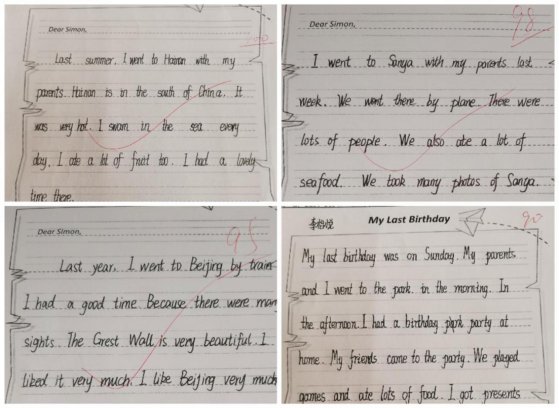 100
Dear Simon,
Last summer. I went to Hainan with my
parents. Hainan is in the south of China. It
was very hot. I swam in the sea every
day. I ate a lot of fruit too. I had a lovely
time there.
98
Dear Simon,
I went to Sanya with my parents last
week. We went there by plane. There were
lots of people. We also ate a lot of
seafood. We took many photos of Sanya.
95
Dear Simon,
Last year. I went to Beijing by train
I had a good time. Because there were man
sights. The Grest Wall is very beautiful. I
liked it very much. I like Beijing very much
90
My Last Birthday
My last birthday was on Sunday. My parents
and I went to the park in the morning. In
the afternoon I had a birthday party at
home. My friends came to the party. We played
games and ate lots of food. I got presents